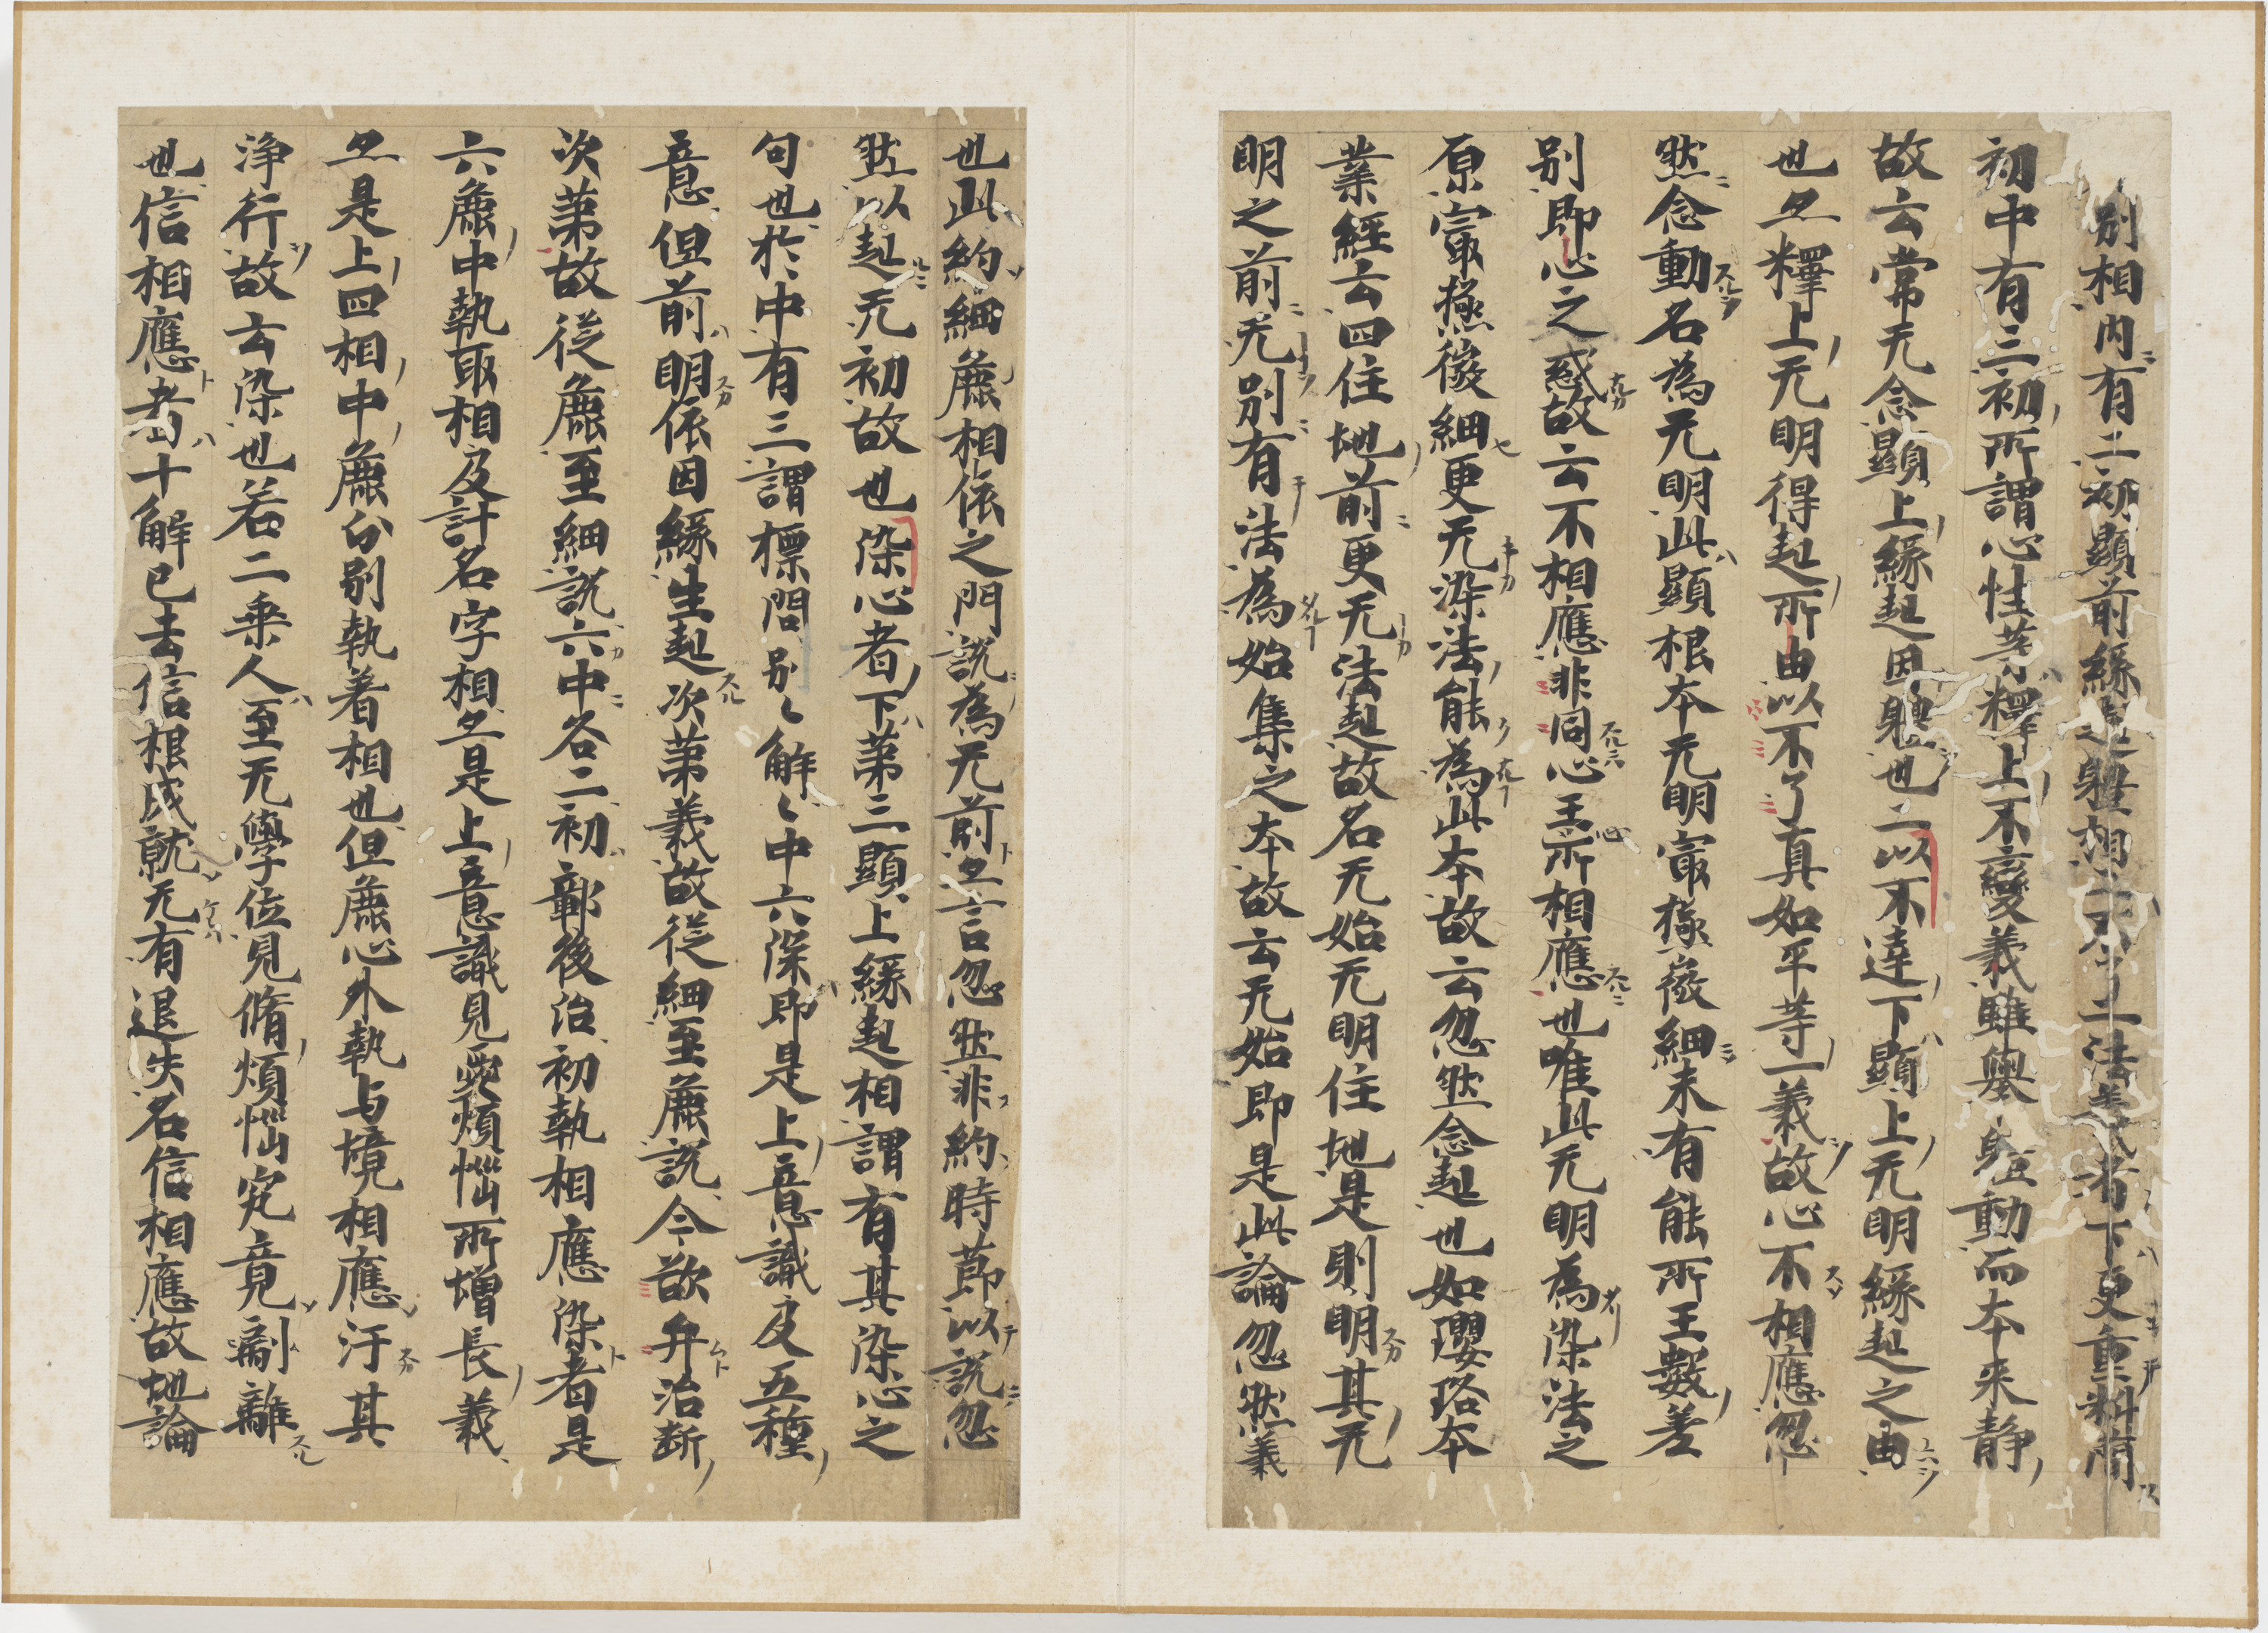 別相内有二初顯前緣起體相二不了二法義者下更重料簡
初中有三初所謂心性等釋上不變義雖舉體動而本来静
故云常无念顯上緣起因體也二以不達下顯上无明緣起之由
也㝡釋上无明得起所由以不了真如平等一義故心不相應忽
然念動名為无明此顯根本无明冣極微細未有能所王數差
別即心之惑故云不相應非同心王所相應也唯此无明為染法之
原冣極微細更无染法能為此本故云忽然念起也如瓔珞本
業經云四住地前更无法起故名无始无明住地是則明其无
明之前无別有法為始集之本故云无始即是此論忽然義
也此約細麁相依之門説為无前亦言忽然非約時莭以説忽
然以起无初故也染心者下苐三顯上緣起相謂有其染心之
句也於中有三謂標問別〻解〻中六染即是上意識及五種
意但前明依因緣生起次苐義故従細至麁説今欲弁治断
次苐故従麁至細説六中各二初鄣後治初執相應染者是
六麁中執取相及計名字相亦是上意識見愛煩惱所增長義
亦是上四相中麁分別執着相也但麁心外執与境相應汙其
浄行故云染也若二乗人至无學位見脩煩惱究竟㓰離
也信相應者十解已去信根成就无有退失名信相應故地論